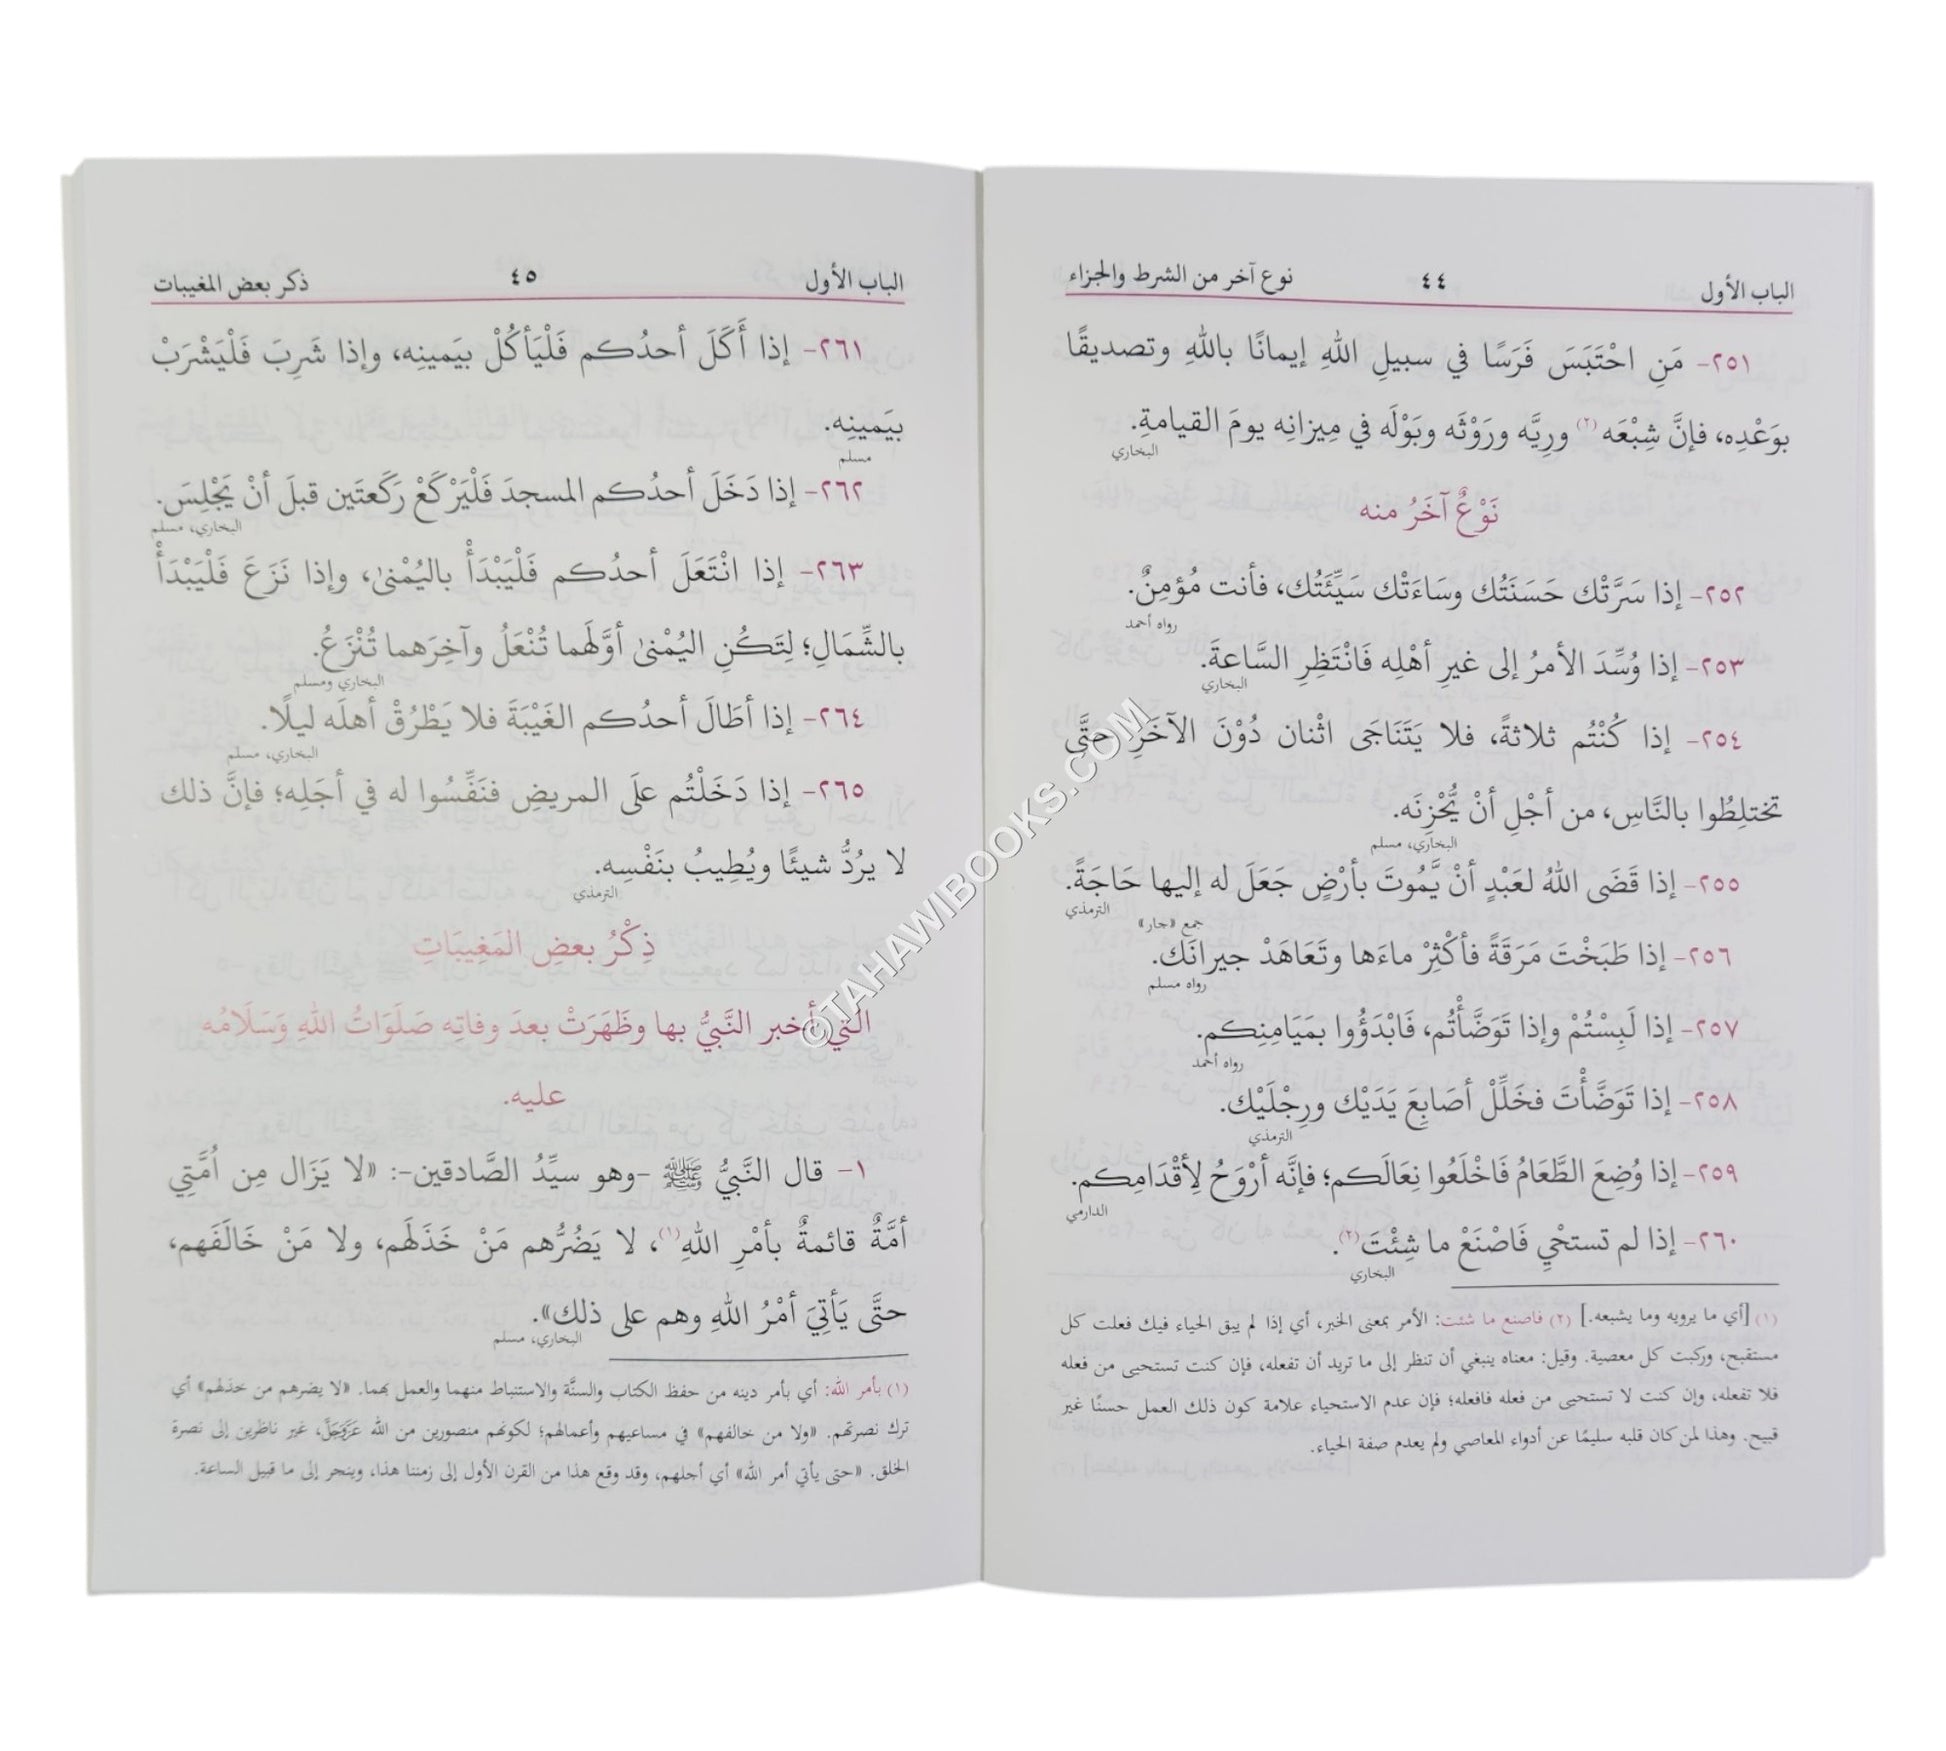 الباب الأول ٤٤ نوع آخر من الشرط والجزاء
٢٥١- مَنِ احْتَبَسَ فَرَسًا في سبيلِ اللهِ إيمانًا باللهِ وتصديقًا
بوَعْدِه، فإنَّ شِبْعَه (٢) ورِيَّه ورَوْثَه وبَوْلَه في مِيزانِه يومَ القيامةِ.
البخاري
نَوْعٌ آخَرُ منه
٢٥٢- إذا سَرَّتْك حَسَنَتُك وسَاءَتْك سَيِّئَتُك، فأنت مُؤمِنٌ.
رواه أحمد
٢٥٣- إذا وُسِّدَ الأمرُ إلى غيرِ أهْلِه فَانْتَظِرِ السَّاعةَ.
البخاري
٢٥٤- إذا كُنْتُم ثلاثةً، فلا يَتَنَاجَى اثْنان دُوْنَ الآخَرِ حتَّى
تختلِطُوا بالنَّاسِ، من أجْلِ أنْ يُّحْزِنَه.
البخاري، مسلم
٢٥٥- إذا قَضَى اللهُ لعَبْدٍ أنْ يَّمُوتَ بأرْضٍ جَعَلَ له إليها حَاجَةً.
الترمذي
جمع «جار»
٢٥٦- إذا طَبَخْتَ مَرَقَةً فأكْثِرْ ماءَها وتَعَاهَدْ جيرانَك.
رواه مسلم
٢٥٧- إذا لَبِسْتُمْ وإذا تَوَضَّأْتُم، فَابْدَؤُوا بمَيَامِنِكم.
رواه أحمد
٢٥٨- إذا تَوَضَّأْتَ فخَلِّلْ أصَابِعَ يَدَيْك ورِجْلَيْك.
الترمذي
٢٥٩- إذا وُضِعَ الطَّعَامُ فَاخْلَعُوا نِعَالَكم؛ فإنَّه أرْوَحُ لِأقْدَامِكم.
الدارمي
٢٦٠- إذا لم تستحْيِ فَاصْنَعْ ما شِئْتَ (٢).
البخاري
(١) [أي ما يرويه وما يشبعه.] (٢) فاصنع ما شئت: الأمر بمعنى الخبر، أي إذا لم يبق الحياء فيك فعلت كل
مستقبح، وركبت كل معصية. وقيل: معناه ينبغي أن تنظر إلى ما تريد أن تفعله، فإن كنت تستحيى من فعله
فلا تفعله، وإن كنت لا تستحيى من فعله فافعله؛ فإن عدم الاستحياء علامة كون ذلك العمل حسنًا غير
قبيح. وهذا لمن كان قلبه سليمًا عن أدواء المعاصي ولم يعدم صفة الحياء.
الباب الأول ٤٥ ذكر بعض المغيبات
٢٦١- إذا أَكَلَ أحدُكم فَلْيَأكُلْ بيَمينِه، وإذا شَرِبَ فَلْيَشْرَبْ
بيَمينِه.
مسلم
٢٦٢- إذا دَخَلَ أحدُكم المسجدَ فَلْيَرْكَعْ رَكَعتَين قبلَ أنْ يَجْلِسَ.
البخاري، مسلم
٢٦٣- إذا انْتَعَلَ أحدُكم فَلْيَبْدَأْ باليُمْنىٰ، وإذا نَزَعَ فَلْيَبْدَأْ
بالشِّمَالِ؛ لِتَكُنِ اليُمْنىٰ أوَّلَهما تُنْعَلُ وآخِرَهما تُنْزَعُ.
البخاري ومسلم
٢٦٤- إذا أطَالَ أحدُكم الغَيْبَةَ فلا يَطْرُقْ أهلَه ليلًا.
البخاري، مسلم
٢٦٥- إذا دَخَلْتُم علَى المريضِ فنَفِّسُوا له في أجَلِه؛ فإنَّ ذلك
لا يرُدُّ شيئًا ويُطِيبُ بنَفْسِه.
الترمذي
ذِكْرُ بعضِ المَغِيبَاتِ
التي أخبر النَّبيُّ بها وظَهَرَتْ بعدَ وفاتِه صَلَوَاتُ اللهِ وَسَلَامُه
عليه.
١- قال النَّبيُّ ﷺ -وهو سيِّدُ الصَّادقين-: «لا يَزَال مِن أمَّتِي
أمَّةٌ قائمةٌ بأمْرِ اللهِ(١)، لا يَضُرُّهم مَنْ خَذَلَهم، ولا مَنْ خَالَفَهم،
حتَّى يَأتِيَ أمْرُ اللهِ وهم على ذلك».
البخاري، مسلم
(١) بأمر الله: أي بأمر دينه من حفظ الكتاب والسنَّة والاستنباط منهما والعمل بهما. «لا يضرهم من خذلهم» أي
ترك نصرتهم. «ولا من خالفهم» في مساعيهم وأعمالهم؛ لكونهم منصورين من الله عَزَّوَجَلَّ، غير ناظرين إلى نصرة
الخلق. «حتى يأتي أمر الله» أي أجلهم، وقد وقع هذا من القرن الأول إلى زمننا هذا، وينجر إلى ما قبيل الساعة.
©TAHAWIBOOKS.COM